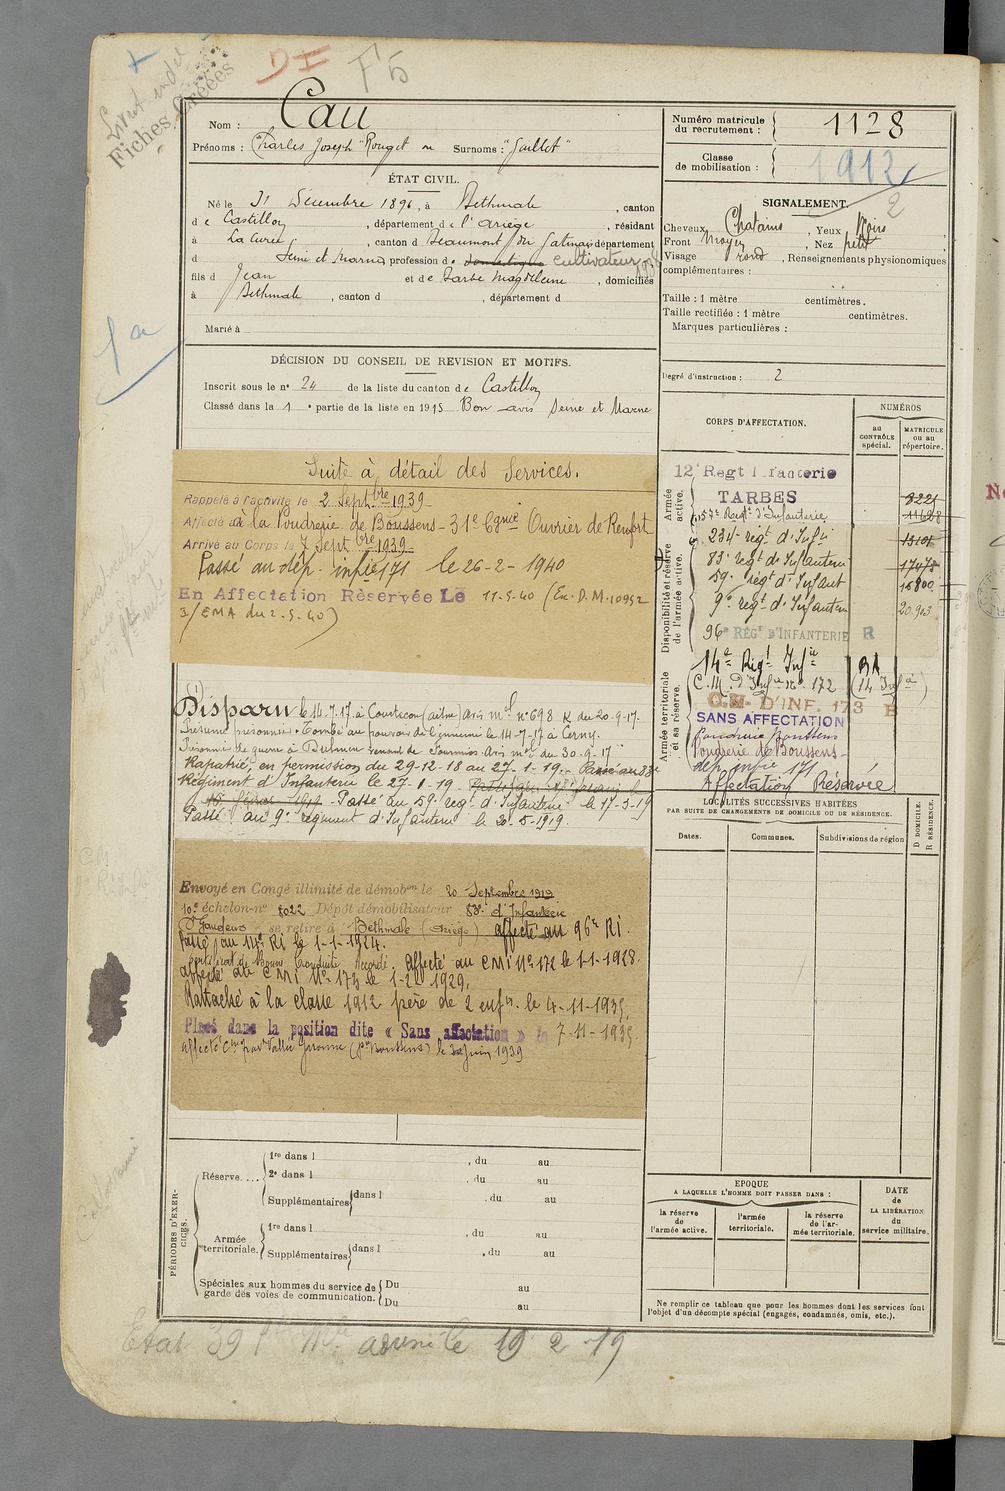 Fiches Créées
DI F5
Nom : Cau
Prénoms : Charles Joseph "Rouget ou Surnoms : "Jaillet"
ÉTAT CIVIL.
Né le 31 Décembre 1896, à Bethmale, canton
de Castillon, département de l'Ariège, résidant
à La Curée, canton d Beaumont du Gatinais département
d Seine et Marne, profession de domestique cultivateur
fils d Jean et de Barbe Magdeleine, domiciliés
à Bethmale, canton d , département d
Marié à
DÉCISION DU CONSEIL DE REVISION ET MOTIFS.
Inscrit sous le n° 24 de la liste du canton de Castillon
Classé dans la 1e partie de la liste en 1915 Bon avis Seine et Marne
Suite à détail des Services.
Rappelé à l'activité le 2 Septbre 1939
Affecté à la Poudrerie de Boussens - 31e Cgnie Ouvrier de Renfort
Arrivé au Corps le 7 Septbre 1939
Passé au dép. infie 171 le 26-2-1940
En Affectation Rèservée Le 11.5.40 (Ex. D.M. 10952
3/EMA du 2.5.40)
Disparu le 16.7.17 à Courtecon (aisne) Avis mel n° 698 K du 20-9-17.
Présumé prisonnier - Tombé au pouvoir de l'ennemi le 14-7-17 à Cerny.
Prisonnier de guerre à Dulmen venant de Fourmies. Avis mel du 30-9-17
Rapatrié, en permission du 29-12-18 au 27-1-19. Passé au 83e
Régiment d'Infanterie le 27-1-19.
Passé au 59e régt d'Infanterie le 17-3-19
Passé au 9e régiment d'Infanterie le 30-5-1919.
Envoyé en Congé illimité de démobon le 20 Septembre 1919
10e échelon-n° 8022 Dépôt démobilisateur 83e d'Infanterie
St Gaudens se retire à Bethmale (Ariège) affecté au 96e RI.
Passé au 14e RI le 1-1-1924.
Certificat de Bonne Conduite accordé. Affecté au CMI N° 172 le 1-1-1928.
affecté au CMI N° 173 le 1-2-1929.
Rattaché à la classe 1912 père de 2 enfts. le 4-11-1935.
Placé dans la position dite « Sans affectation » le 7-11-1935.
PÉRIODES D'EXERCICES.
Réserve....
1re dans l , du au
2e dans l , du au
Supplémentaires dans l , du au
Armée territoriale.
1re dans l , du au
Supplémentaires dans l , du au
Spéciales aux hommes du service de garde des voies de communication.
Du au
Du au
Numéro matricule du recrutement : 1128
Classe de mobilisation : 1912
2
SIGNALEMENT.
Cheveux Chatains, Yeux Noirs
Front moyen, Nez petit
Visage rond, Renseignements physionomiques
complémentaires :
Taille : 1 mètre centimètres.
Taille rectifiée : 1 mètre centimètres.
Marques particulières :
Degré d'instruction : 2
CORPS D'AFFECTATION.
NUMÉROS
au CONTRÔLE spécial.
MATRICULE ou au répertoire.
Armée active.
12e Regt Infanterie
TARBES
57e Regt d'Infanterie
8221
11628
Disponibilité et réserve de l'armée active.
234e régt d'Infie 13101
83e régt d'Infanterie 17475
59e régt d'Infant 16800
9e régt d'Infanterie 20.903
96e RÉGt D'INFANTERIE R
Armée territoriale et sa réserve.
14e Régt Infie BA
C.M. d'Infie N° 172 (14 Infie)
C.M. D'INF. 173 B
SANS AFFECTATION
Poudrerie Boussens
Poudrerie de Boussens
dép. infie 171
Affectation Réservée
LOCALITÉS SUCCESSIVES HABITÉES
PAR SUITE DE CHANGEMENTS DE DOMICILE OU DE RÉSIDENCE.
Dates. Communes. Subdivisions de région D DOMICILE. R RÉSIDENCE.
EPOQUE
A LAQUELLE L'HOMME DOIT PASSER DANS :
la réserve de l'armée active.
l'armée territoriale.
la réserve de l'armée territoriale.
DATE de LA LIBÉRATION du service militaire.
Ne remplir ce tableau que pour les hommes dont les services font
l'objet d'un décompte spécial (engagés, condamnés, omis, etc.).
19 2 19